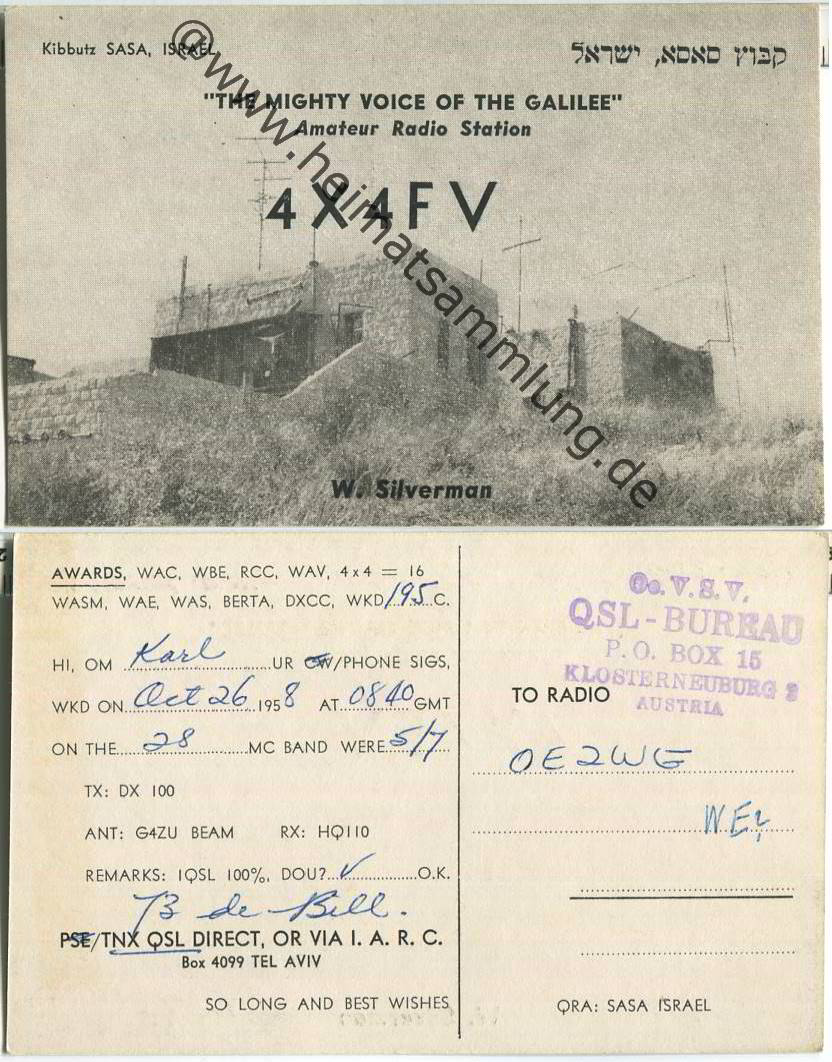 Kibbutz SASA, ISRAEL
קבוץ סאסא, ישראל
"THE MIGHTY VOICE OF THE GALILEE"
Amateur Radio Station
4X4FV
W. Silverman
@www.heimatsammlung.de
AWARDS, WAC, WBE, RCC, WAV, 4x4 = 16
WASM, WAE, WAS, BERTA, DXCC, WKD 195 C.
HI, OM Karl UR CW/PHONE SIGS,
WKD ON Oct 26 1958 AT 0840 GMT
ON THE 28 MC BAND WERE 5/7
TX: DX 100
ANT: G4ZU BEAM RX: HQ110
REMARKS: IQSL 100%, DOU? ✓ O.K.
73 de Bill.
PSE/TNX QSL DIRECT, OR VIA I. A. R. C.
Box 4099 TEL AVIV
SO LONG AND BEST WISHES
Oe. V. S. V.
QSL-BUREAU
P. O. BOX 15
KLOSTERNEUBURG 2
AUSTRIA
TO RADIO
OE2WG
QRA: SASA ISRAEL